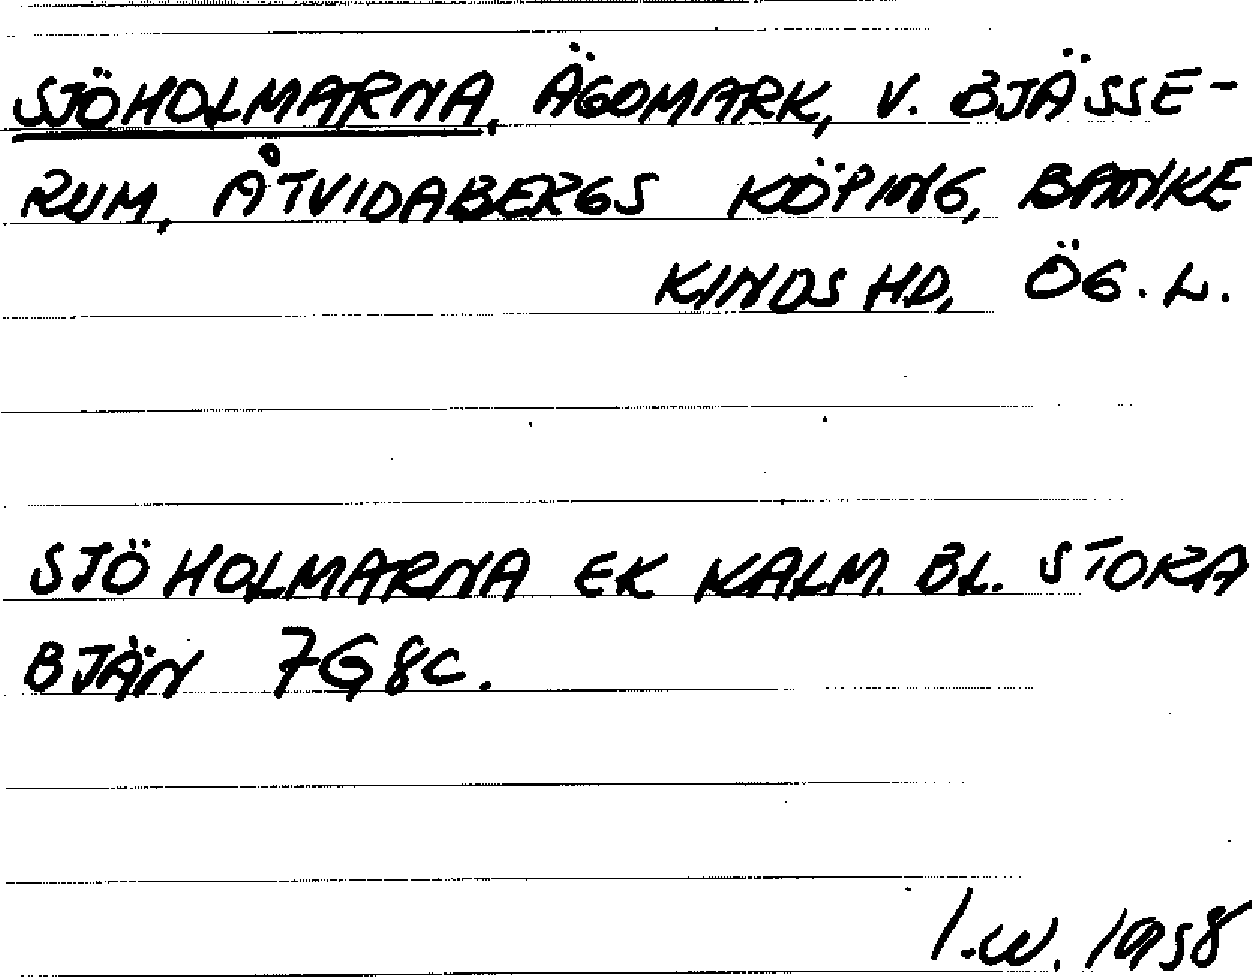 SJÖHOLMARNA, ÄGOMARK, V. BJÄSSE-
RUM, ÅTVIDABERGS KÖPING, BANKE
KINDS HD, ÖG. L.
SJÖHOLMARNA EK KALM. BL. STORA
BJÄN 7G8C.
I.W. 1958